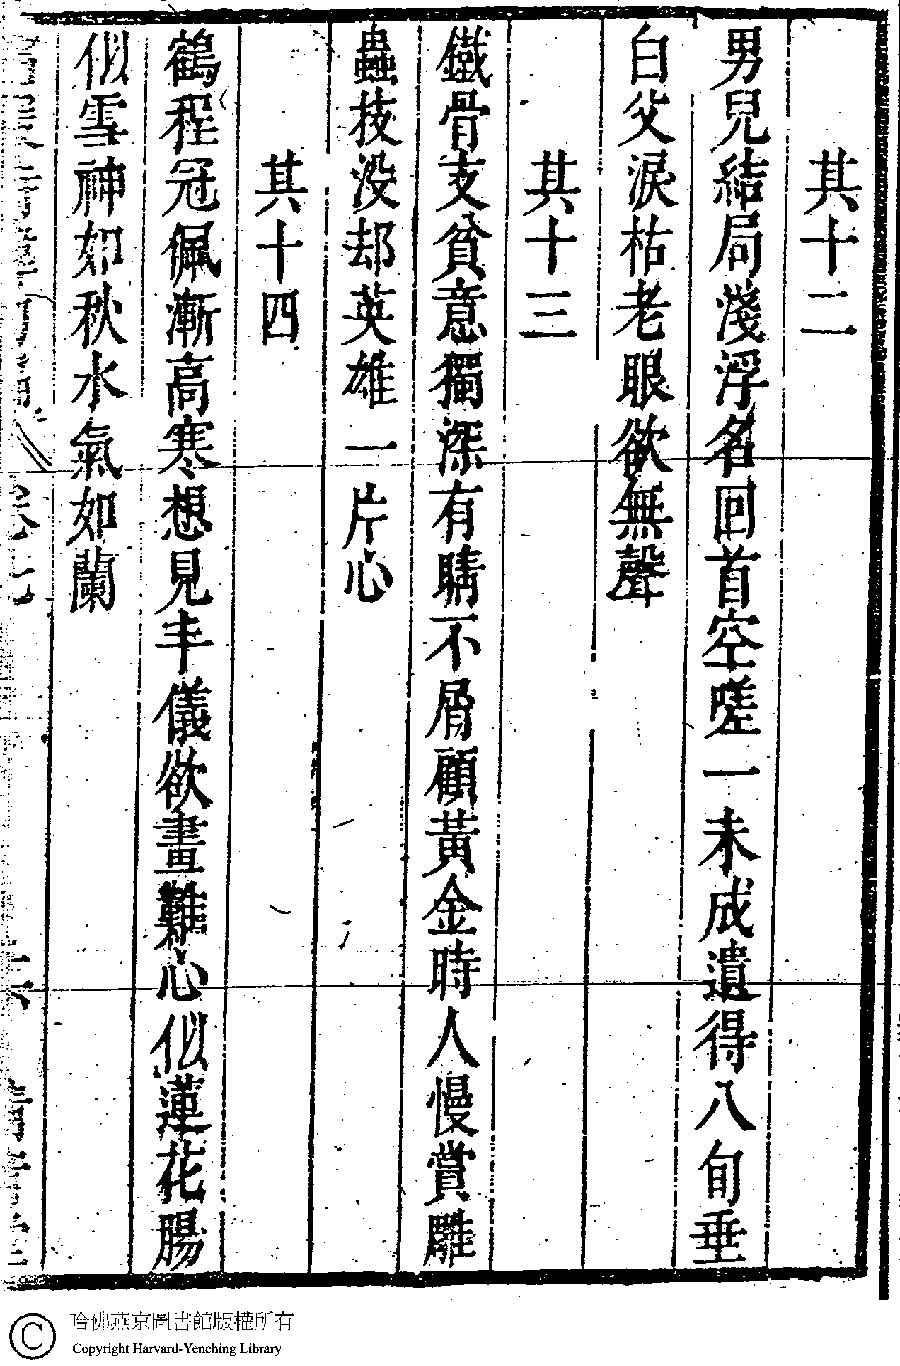 其十二
男兒結局淺浮名回首空嗟一未成遺得八旬垂
白父淚枯老眼欲無聲
其十三
鐵骨支貧意獨深有睛不屑顧黃金時人慢賞雕
蟲技没却英雄一片心
其十四
鶴程冠佩漸高寒想見丰儀欲畫難心似蓮花腸
似雪神如秋水氣如蘭
哈佛燕京圖書館版權所有
Copyright Harvard-Yenching Library